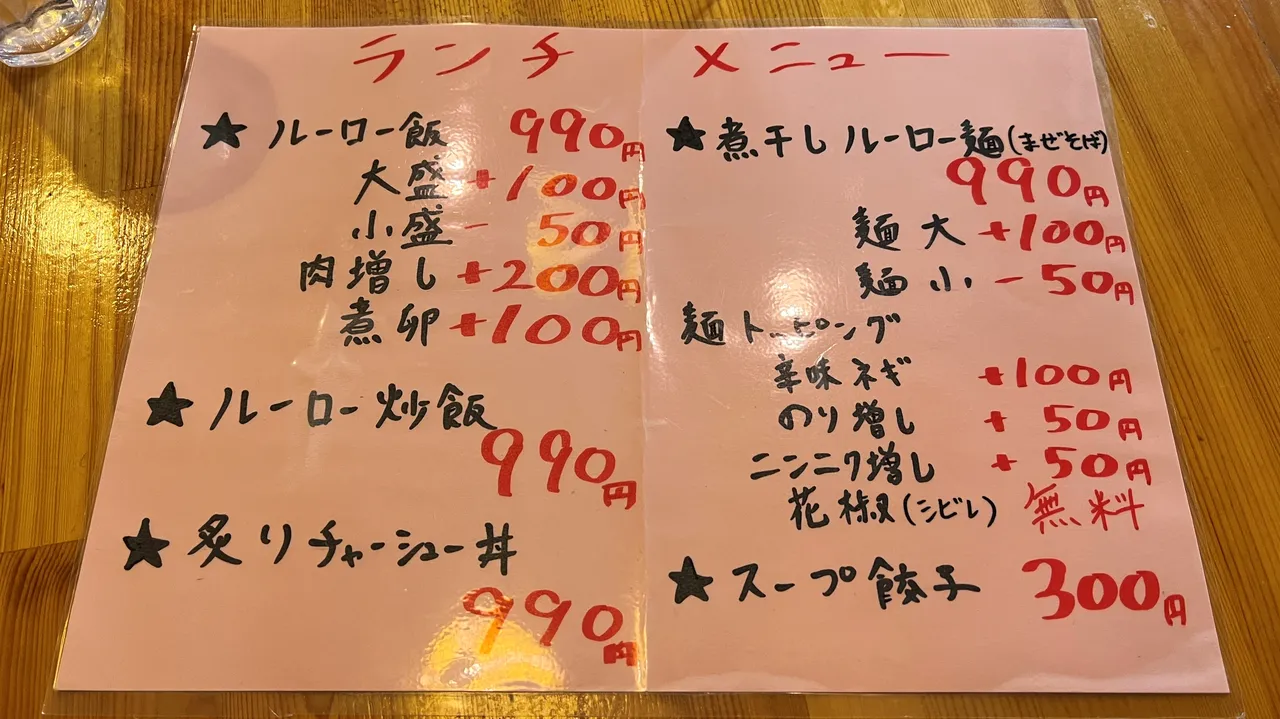 ランチ メニュー
★ルーロー飯 990円
大盛 +100円
小盛 - 50円
肉増し +200円
煮卵 +100円
★ルーロー炒飯
990円
★炙りチャーシュー丼
990円
★煮干しルーロー麺(まぜそば)
990円
麺大 +100円
麺小 -50円
麺トッピング
辛味ネギ +100円
のり増し + 50円
ニンニク増し + 50円
花椒(シビレ) 無料
★スープ餃子 300円